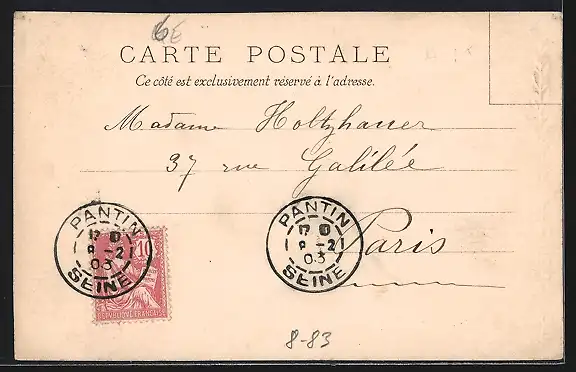 6E
CARTE POSTALE
Ce côté est exclusivement réservé à l'adresse.
Madame Holtzhauer
37 rue Galilée
Paris
PANTIN
8 -2
03
SEINE
10
REPUBLIQUE FRANÇAISE
PANTIN
8 -2
03
SEINE
8-83